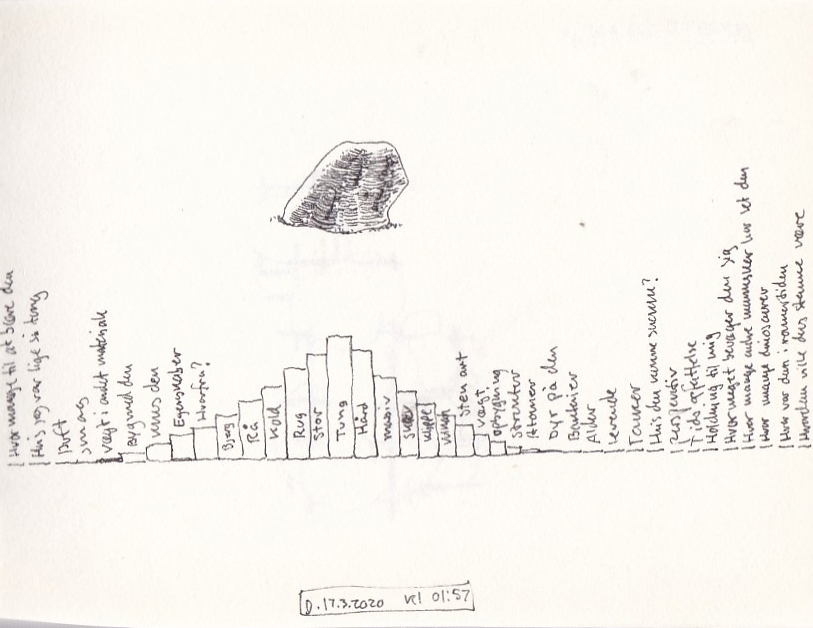 Hvor mange til at bære den
Hvis jeg var lige så tung
Duft
smag
vægt i andet materiale
Byg med den
mus den
Egenskaber
Hvorfra?
Bjerg
Rå
Kold
Rug
Stor
Tung
Hård
massiv
svær
klippe
Sten art
vægt?
opbygning
struktur
Atomer
Dyr på den
Bakterier
Alder
Levende
Tanker
Hvis den kunne snakke?
Perspektiv
Tids opfattelse
Holdning til mig
Hvor meget bevæger den sig
Hvor mange andre mennesker har set den
Hvor mange dinosaurer
Hvor var den i romertiden
Hvordan ville dens stemme være
D.17.3.2020 kl 01:57